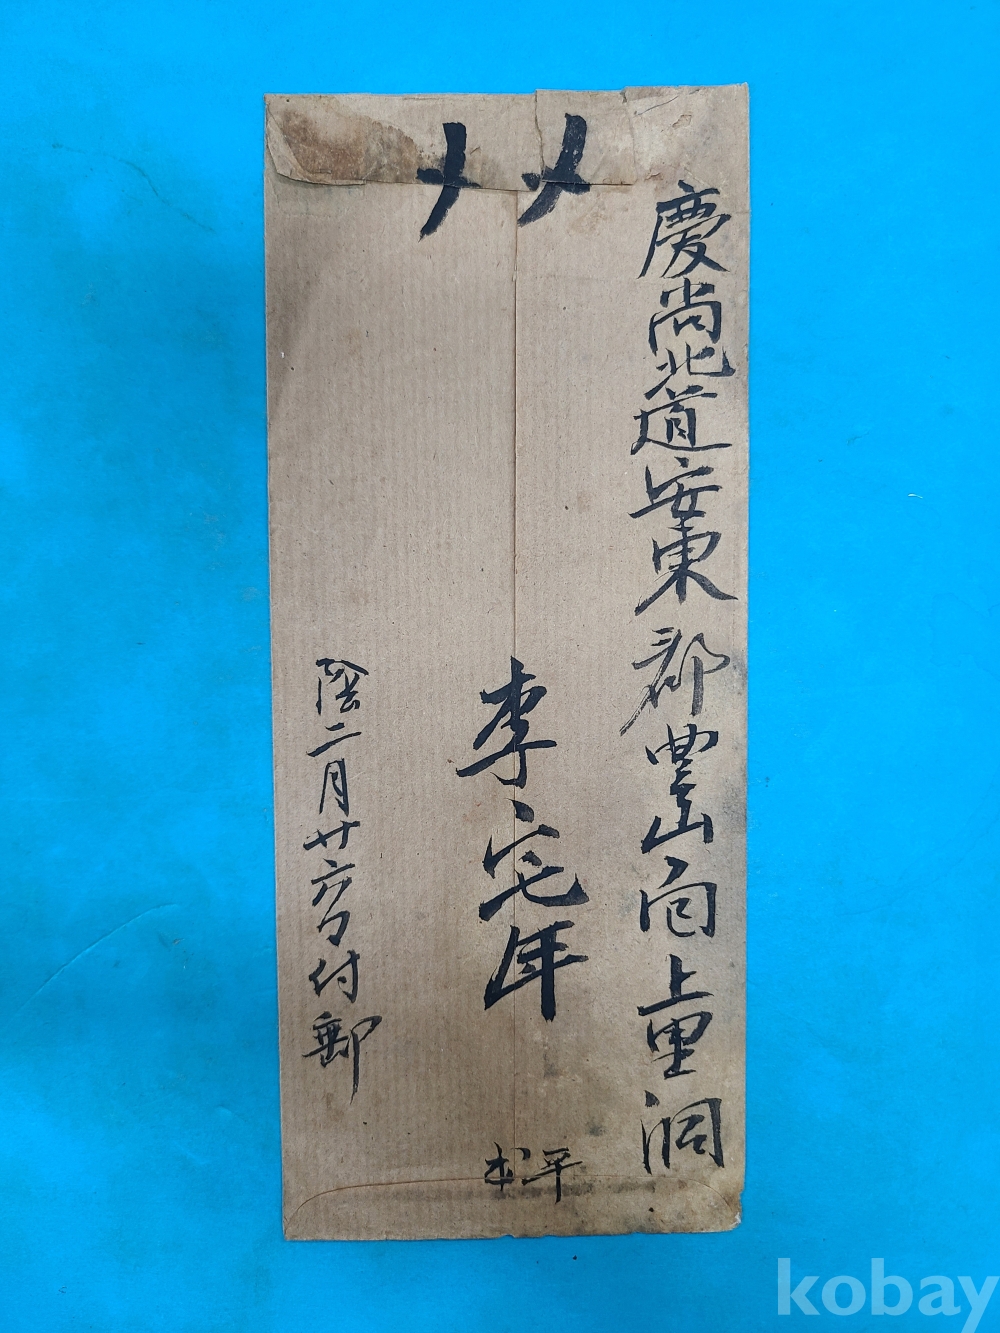 〆 〆
慶尚北道安東郡豊山面上里洞
李宅年
陰二月廿六日付郵
kobay